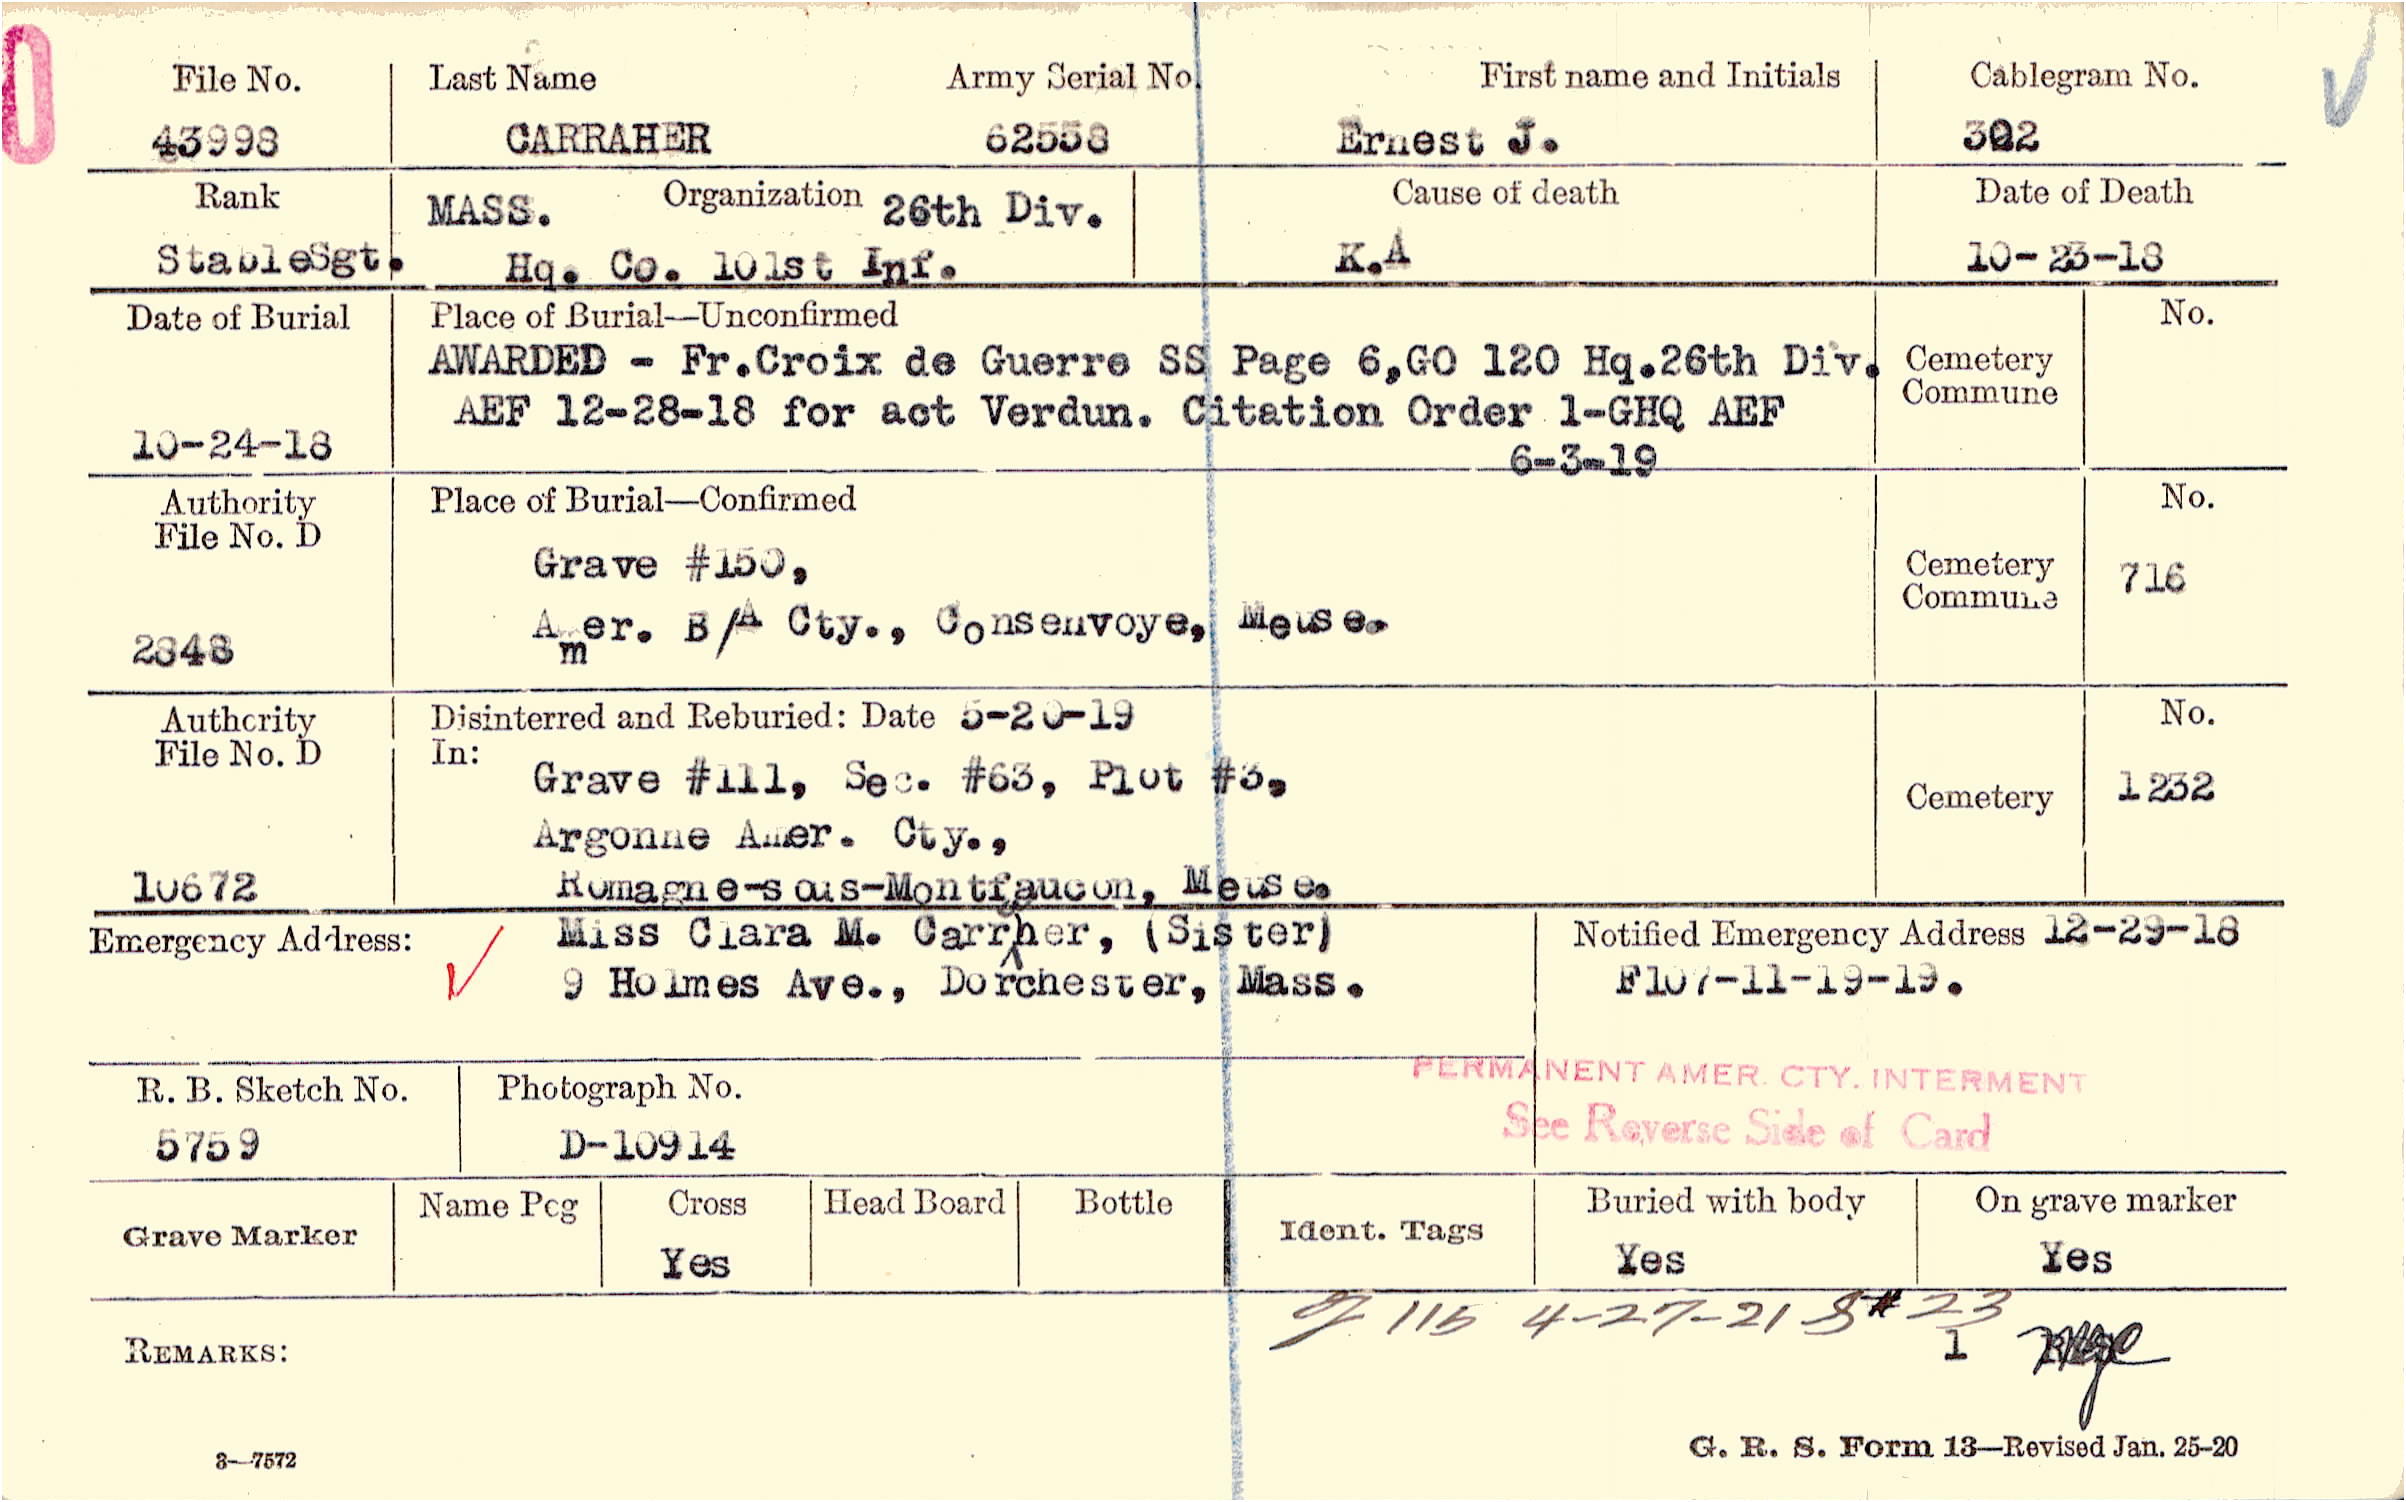 File No. Last Name Army Serial No. First name and Initials Cablegram No.
43998 CARRAHER 62558 Ernest J. 302
Rank MASS. Organization 26th Div. Cause of death Date of Death
StableSgt. Hq. Co. 101st Inf. K.A 10-23-18
Date of Burial Place of Burial—Unconfirmed No.
AWARDED - Fr.Croix de Guerre SS Page 6,GO 120 Hq.26th Div. Cemetery
Commune
AEF 12-28-18 for act Verdun. Citation Order 1-GHQ AEF
10-24-18 6-3-19
Authority Place of Burial—Confirmed No.
File No. D
Grave #150, Cemetery 716
Commune
2848 Amer. B/A Cty., Consenvoye, Meuse.
Authority Disinterred and Reburied: Date 5-20-19 No.
File No. D In:
Grave #111, Sec. #63, Plot #3, Cemetery 1232
Argonne Amer. Cty.,
10672 Romagne-sous-Montfaucon, Meuse.
Emergency Address: Miss Clara M. Carraher, (Sister) Notified Emergency Address 12-29-18
9 Holmes Ave., Dorchester, Mass. F107-11-19-19.
PERMANENT AMER. CTY. INTERMENT
R. B. Sketch No. Photograph No. See Reverse Side of Card
5759 D-10914
Grave Marker Name Peg Cross Head Board Bottle Ident. Tags Buried with body On grave marker
Yes Yes Yes
115 4-27-21 S#23
REMARKS: 1
3—7572 G. R. S. Form 13—Revised Jan. 25-20